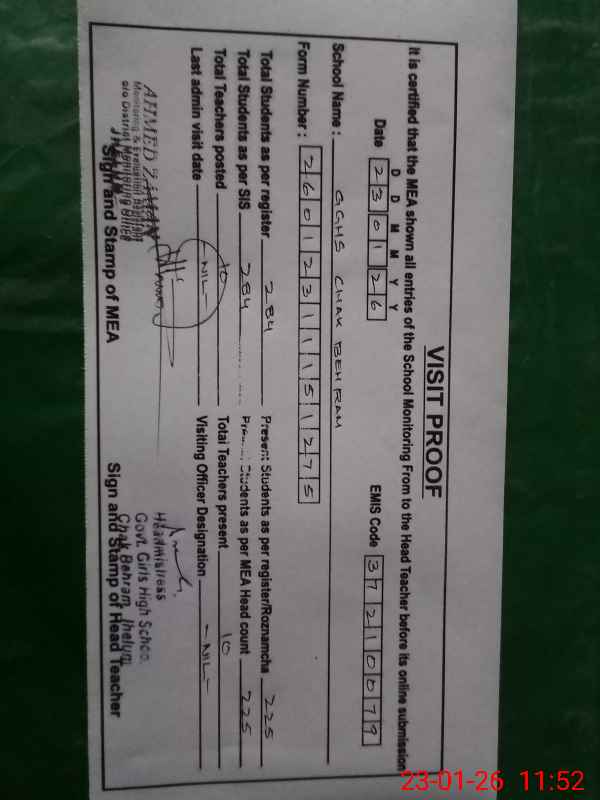 VISIT PROOF
It is certified that the MEA shown all entries of the School Monitoring From to the Head Teacher before its online submission
D D M M Y Y
Date 2 3 0 1 2 6 EMIS Code 3 7 2 1 0 0 7 9
School Name : GGHS CHAK BEHRAM
Form Number : 2 6 0 1 2 3 1 1 1 5 1 2 7 5
Total Students as per register 284 Present Students as per register/Roznamcha 225
Total Students as per SIS 284 Present Students as per MEA Head count 225
Total Teachers posted 10 Total Teachers present 10
Last admin visit date -NIL- Visiting Officer Designation -NIL-
AHMED ZAMAN
Monitoring & Evaluation Assistant
o/o District Monitoring Office
JHELUM
Sign and Stamp of MEA
Headmistress
Govt. Girls High School
Chak Behram Jhelum
Sign and Stamp of Head Teacher
23-01-26 11:52